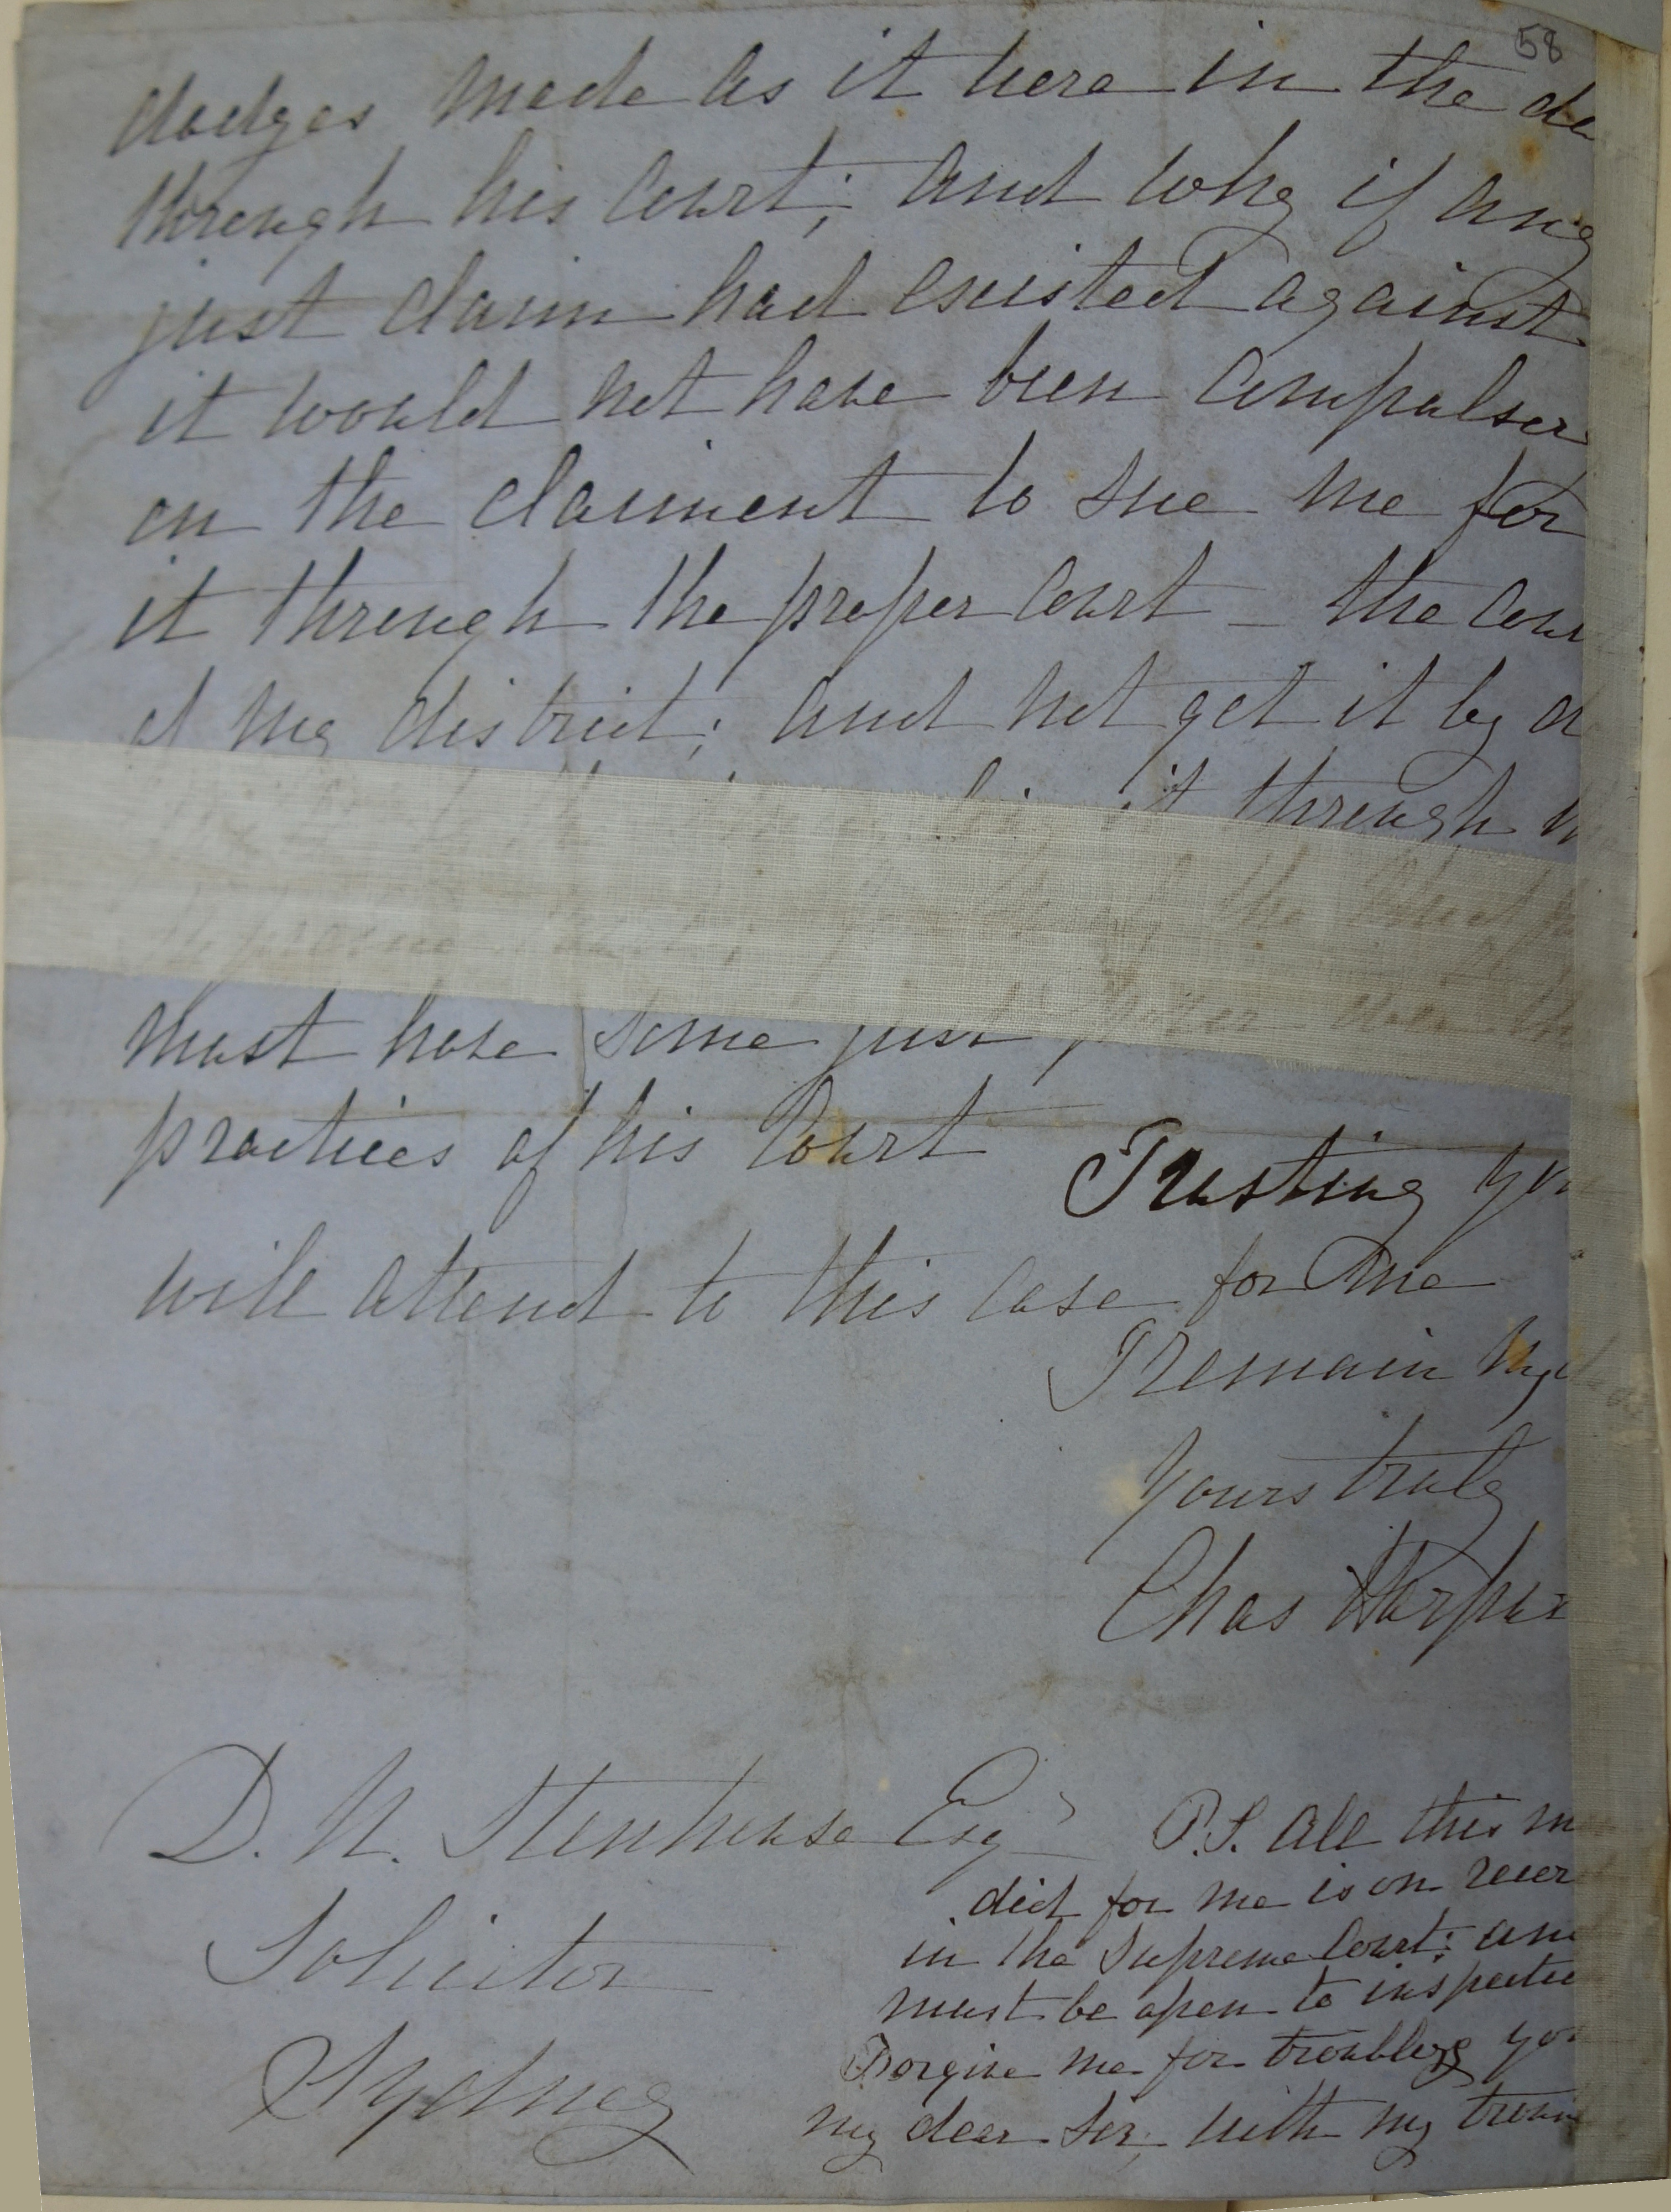 58
dodges made as it were in the de
through his Court; and why if any
just claim had existed against
it would not have been compulsor
on the claiment to sue me for
it through the proper Court – the Cour
of my district; and not get it by a
it through
the Chief
Supreme
must have some just
practices of his Court
Trusting you
will attend to this case for me
I remain My d
Yours truly
Chas Harpur
D. N. Stenhouse Esqr
P.S. All this m
did for me is on recor
in the Supreme Court; and
must be open to inspectio
Forgive me for troubleg you
my dear Sir, with my
Solicitor
Sydney